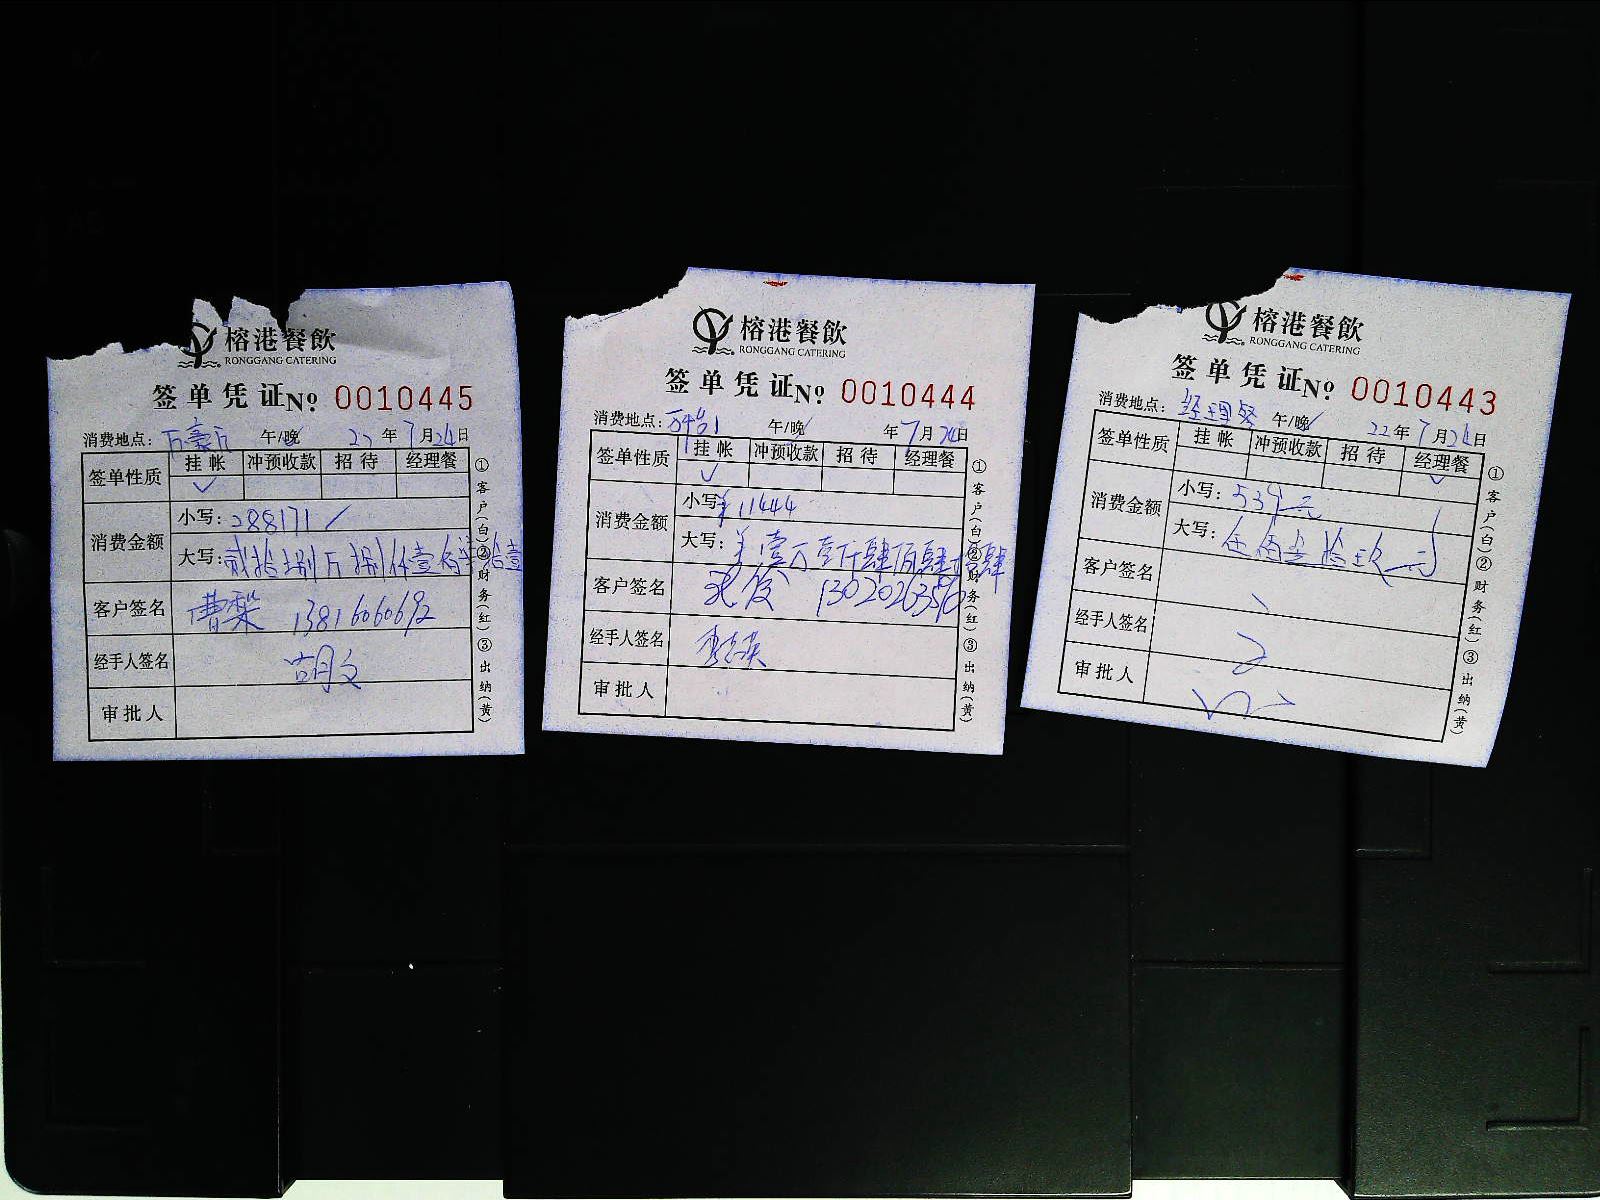 榕港餐飲
RONGGANG CATERING
签单凭证No 0010445
消费地点： 万豪 午/晚 22年7月24日
签单性质 挂帐 冲预收款 招待 经理餐
✓
消费金额
小写：288171
大写：贰拾捌万捌仟壹佰柒拾壹
客户签名
经手人签名 胡文
审批人
①客户(白)②财务(红)③出纳(黄)
榕港餐飲
RONGGANG CATERING
签单凭证No 0010444
消费地点： 午/晚 年7月24日
签单性质 挂帐 冲预收款 招待 经理餐
✓
消费金额
小写：¥11444
大写：壹万壹仟肆佰肆拾肆
客户签名
经手人签名
审批人
①客户(白)②财务(红)③出纳(黄)
榕港餐飲
RONGGANG CATERING
签单凭证No 0010443
消费地点：经理餐 午/晚 22年7月24日
签单性质 挂帐 冲预收款 招待 经理餐
✓
消费金额
小写：539元
大写：伍佰叁拾玖元
客户签名
经手人签名
审批人
①客户(白)②财务(红)③出纳(黄)